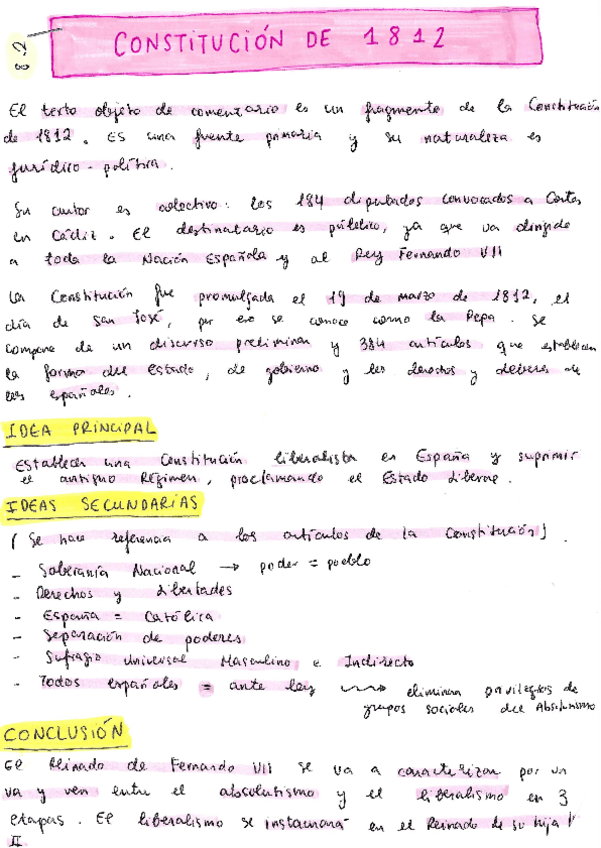 8.2
CONSTITUCIÓN DE 1812
El texto objeto de comentario es un fragmento de la Constitución
de 1812. Es una fuente primaria y su naturaleza es
jurídico-política.
Su autor es colectivo: los 184 diputados convocados a Cortes
en Cádiz. El destinatario es público, ya que va dirigido
a toda la Nación Española y al Rey Fernando VII
La Constitución fue promulgada el 19 de marzo de 1812, el
día de San José, por eso se conoce como la Pepa. Se
compone de un discurso preliminar y 384 artículos que establecen
la forma del Estado, de gobierno y los derechos y deberes de
los españoles.
IDEA PRINCIPAL
Establecer una Constitución liberalista en España y suprimir
el antiguo Régimen, proclamando el Estado Liberal.
IDEAS SECUNDARIAS
(Se hace referencia a los artículos de la Constitución).
- Soberanía Nacional → poder = pueblo
- Derechos y Libertades
- España = Católica
- Separación de poderes
- Sufragio Universal Masculino e Indirecto
- Todos españoles = ante ley → eliminan privilegios de
grupos sociales del Absolutismo
CONCLUSIÓN
El Reinado de Fernando VII se va a caracterizar por un
va y ven entre el absolutismo y el liberalismo en 3
etapas. El liberalismo se instaurará en el Reinado de su hija I
II